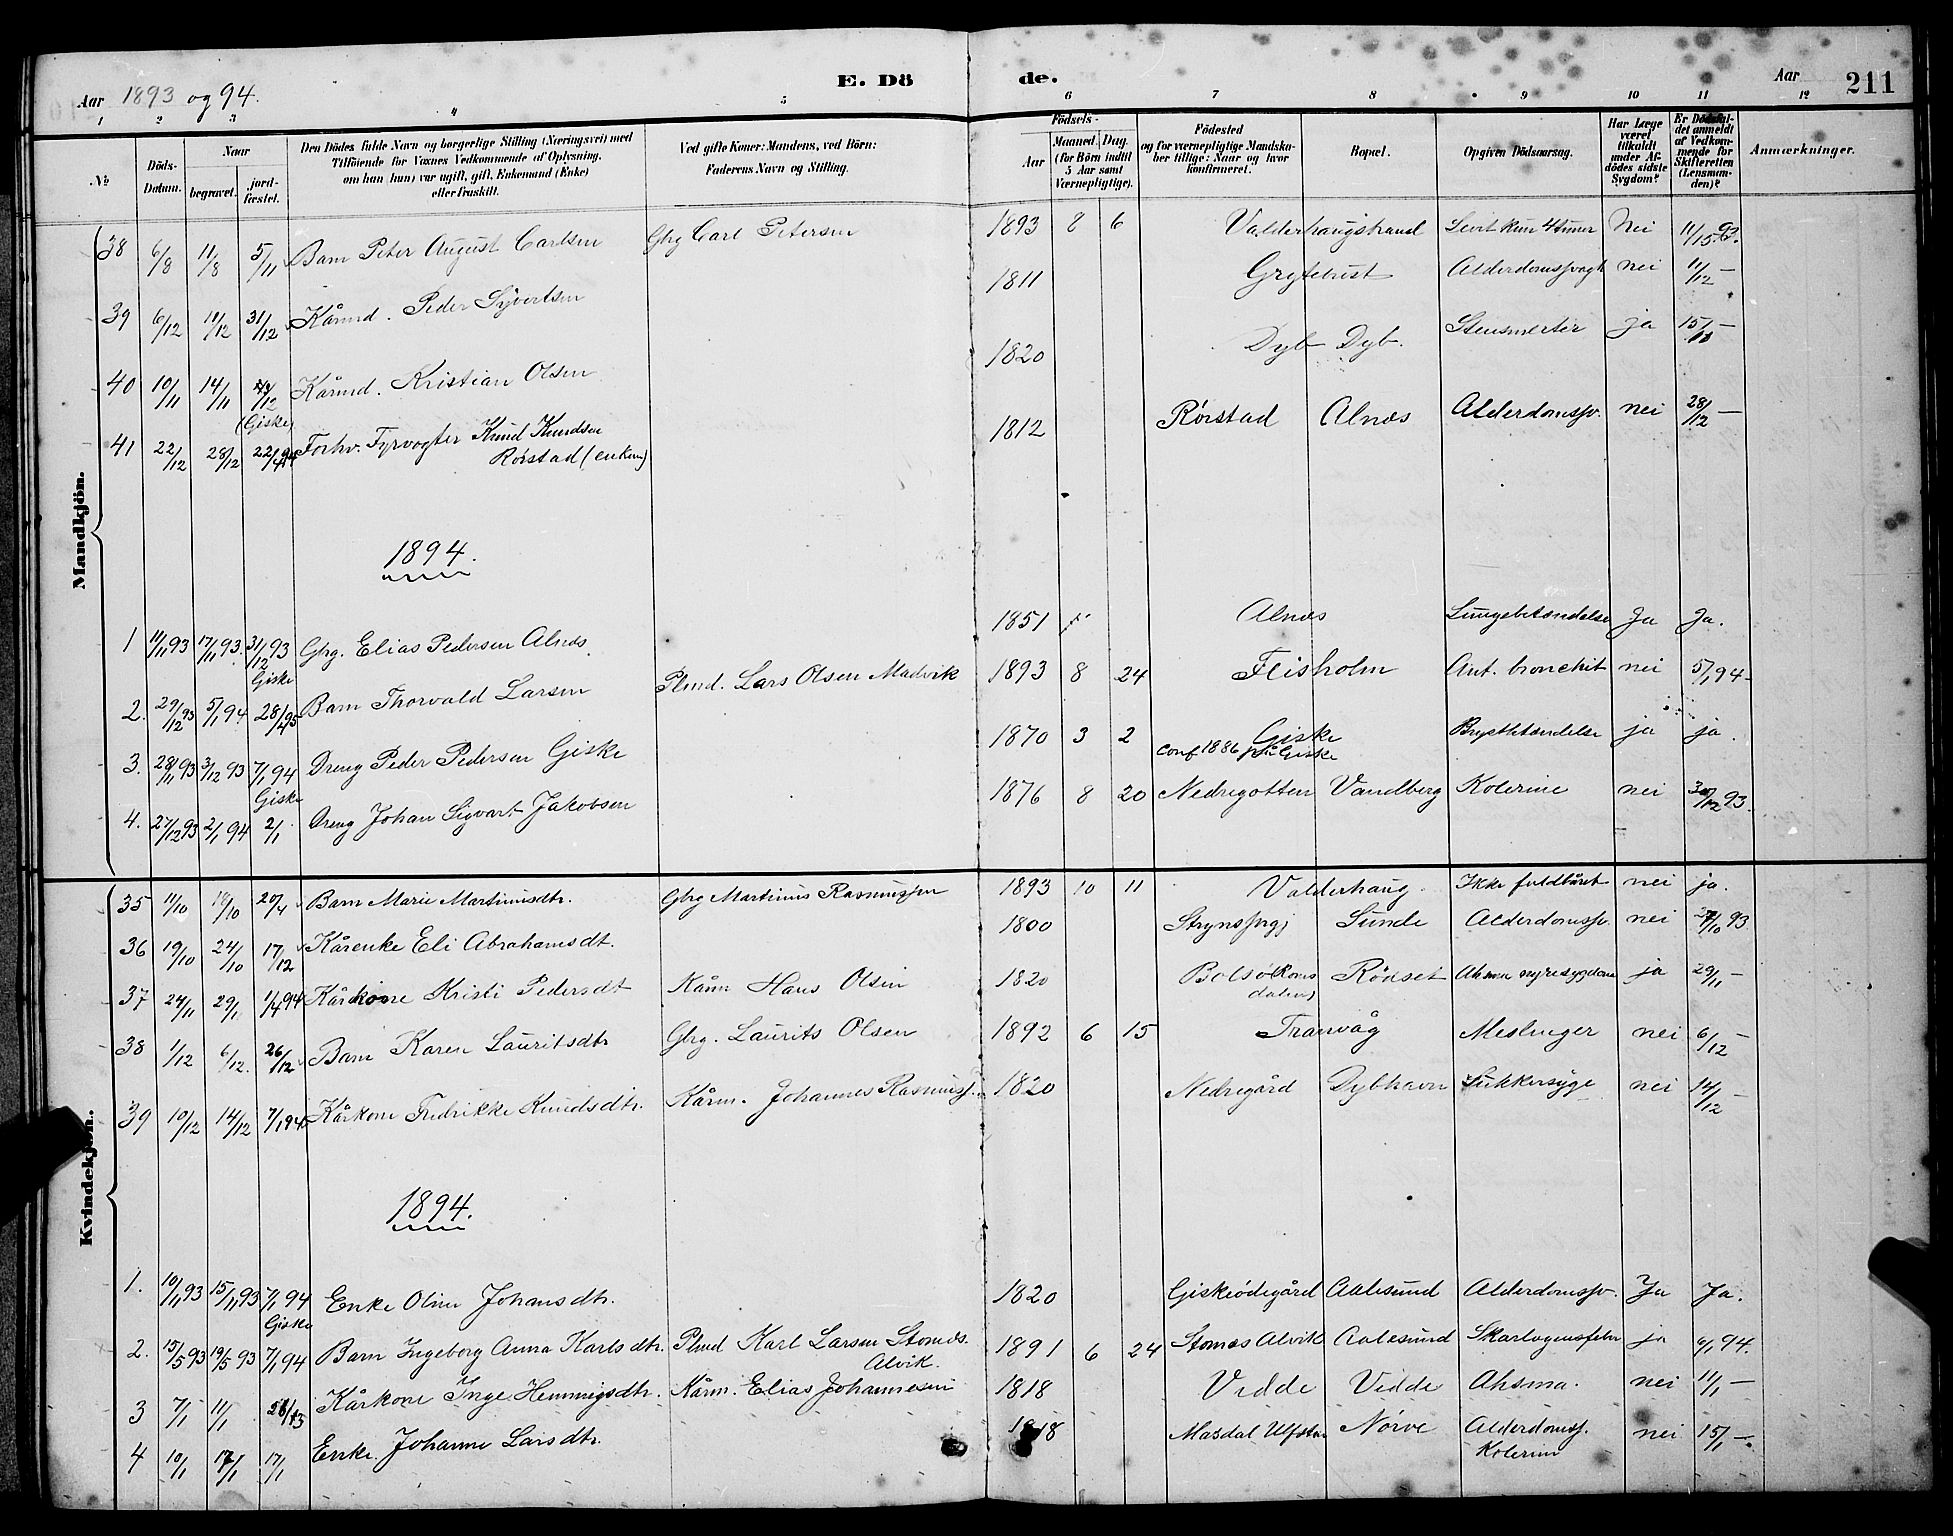 E. Dö de.
Aar 1893 og 94. Aar 211
1 2 3 4 5 6 7 8 9 10 11 12
№ Döds-Datum. Naar begravet. jord-fæstet. Den Dödes fulde Navn og borgerlige Stilling (Næringsvei) med Tilföiende for Voxnes Vedkommende af Oplysning, om han (hun) var ugift, gift, Enkemand (Enke) eller fraskilt. Ved gifte Koner: Mandens, ved Börn: Faderens Navn og Stilling. Födsels- Aar Maaned. Dag. (for Börn indtil 5 Aar samt Værnepligtige). Födested og for værnepligtige Mandska-ber tillige: Naar og hvor konfirmeret. Bopæl. Opgiven Dödsaarsag. Har Læge været tilkaldt under Af-dödes sidste Sygdom? Er Dödsfal-det anmeldt af Vedkom-mende for Skifteretten (Lensman-den)? Anmærkninger.
Mandkjön.
38 6/8 11/8 5/11 Barn Peter August Carlsen Gbrg Carl Petersen 1893 8 6 Valderhaugstrand Levet kun 4 timer Nei
39 6/12 10/12 31/12 Kårmd. Peder Syvertsen 1811 Grytebust Alderdomssvagh nei 11/12 —
40 10/11 14/11 Kårmd. Kristian Olsen 1820 Dyb Dyb. Stensmerter ja
(Giske)
41 22/12 28/12 22/4 94 Forhv. Fyrvogter Knud Knudsen 1812 Rörstad Alnæs Alderdomssv. nei 28/12 —
Rörstad (enkem)
1894.
1 11/11 93 17/11 93. 31/12 93 Gbrg. Elias Pedersen Alnæs. 1851 Alnæs Lungebetændelse Ja Ja.
Giske
2. 29/12 93 5/1 94 28/4 95 Barn Thorvald Larsen Plmd. Lars Olsen Madvik 1893 8 24 Flisholm Aut. bronchit nei 5/1 94 —
3. 28/11 93 3/12 93 7/1 94 Dreng Peder Pedersen Giske 1870 3 2 Giske Brystbetændelse ja ja.
Giske conf 1886 Giske
4. 27/12 93 2/1 94 2/1 Dreng Johan Sigvart Jakobsen 1876 8 20 Nedregotten Vandberg Kolerine nei 30/12 93.
Kvindekjön.
35 11/10 18/10 20/4 Barn Marie Martinusdtr. Gbrg Martinus Rasmussen 1893 10 11 Valderhaug. Ikke fuldbåret nei ja.
36 19/10 24/10 17/12 Kårenke Eli Abrahamsdt. 1800 Strynsprgj Sunde Alderdomssv. nei 27/10 93
37 24/11 29/11 1/4 94 Kårkone Kristi Pedersdt Kårm Hans Olsen 1820 Bolsö (Roms dalen) Rödset Ahsma nyresygdom ja 29/11 —
38 1/12 6/12. 26/12 Barn Karen Lauritsdtr Gbrg. Laurits Olsen 1892 6 15 Tranvåg Meslinger nei 6/12 —
39 10/12 14/12 7/1 94 Kårkone Fredrikke Knudsdtr. Kårm. Johannes Rasmuss. 1820 Nedregård Dybhavn Sukkersyge nei 14/12 —
1894.
1. 10/11 93 15/11 93 7/1 94 Enke Oline Johansdtr. 1820 Giskeödegård Aalesund Alderdomssv. Ja Ja.
Giske
2. 15/5 93 19/5 93 7/1 94 Barn Ingeborg Anna Karlsdtr. Plmd Karl Larsen Stomæs. 1891 6 24 Stomæs Alvik Aalesund Skarlagensfeber ja 6/1 94.
Alvik.
3 7/1 11/1 Kårkone Inge Hemmigsdtr. Kårm. Elias Johannesen 1818 Vidde Vidde Ahsma. nei 11/1 —
4 10/1 17/1 17/1 Enke. Johanne Larsdtr. 1818 Masdal Ulfsten Nörve Alderdomss. nei 15/1 —.
Kolerine